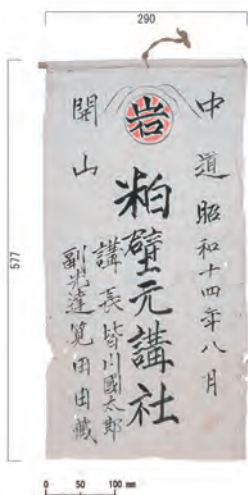 290
577
岩
中道
昭和十四年八月
粕壁元講社
開山
講長皆川國太郎
副先達筧田由藏
0 50 100 mm